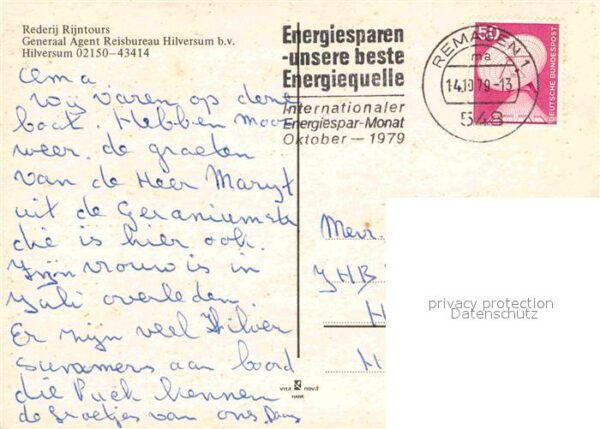 Rederij Rijntours
Generaal Agent Reisbureau Hilversum b.v.
Hilversum 02150-43414
Oma
Wij varen op deze
boot Hebben mooi
weer. de groeten
van de Heer Maryt
uit de Geraniumstr
die is hier ook.
Zijn vrouw is in
Juli overleden.
Er zijn veel Hilver
sumamers aan boord
die Puck kennen
de Groetjes van ons.
Energiesparen
-unsere beste
Energiequelle
Internationaler
Energiespar-Monat
Oktober — 1979
REMAGEN 1
ma
14.10.79-13
548
50
DEUTSCHE BUNDESPOST
Mevr.
JHB
H
H
privacy protection
Datenschutz